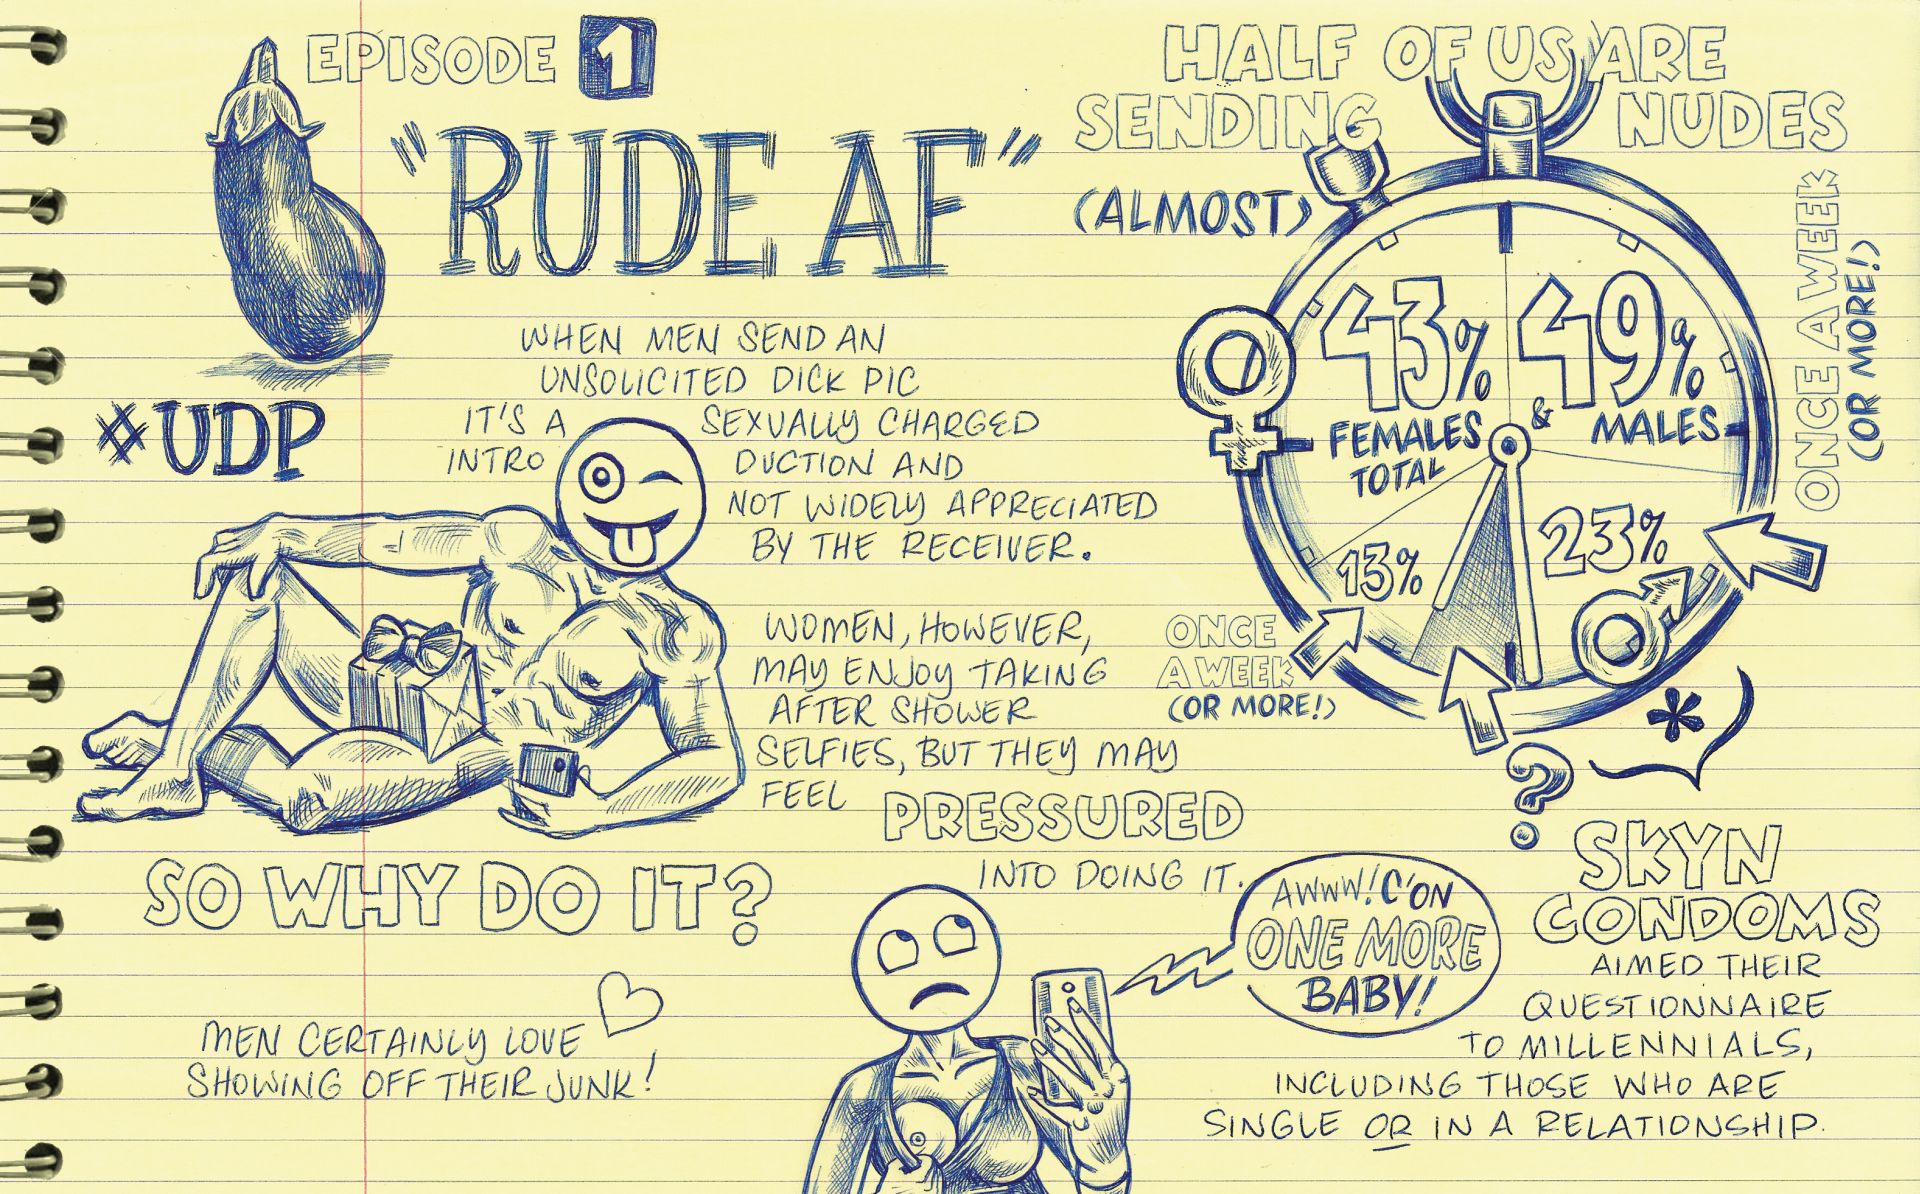 EPISODE 1
"RUDE AF"
#UDP
WHEN MEN SEND AN
UNSOLICITED DICK PIC
IT'S A SEXUALLY CHARGED
INTRO DUCTION AND
NOT WIDELY APPRECIATED
BY THE RECEIVER.
WOMEN, HOWEVER,
MAY ENJOY TAKING
AFTER SHOWER
SELFIES, BUT THEY MAY
FEEL PRESSURED
INTO DOING IT.
SO WHY DO IT?
MEN CERTAINLY LOVE
SHOWING OFF THEIR JUNK!
AWWW! C'ON
ONE MORE
BABY!
HALF OF US ARE
SENDING NUDES
(ALMOST)
ONCE A WEEK
(OR MORE!)
43% & 49%
FEMALES MALES
TOTAL
13% 23%
ONCE
A WEEK
(OR MORE!)
*
?
SKYN
CONDOMS
AIMED THEIR
QUESTIONNAIRE
TO MILLENNIALS,
INCLUDING THOSE WHO ARE
SINGLE OR IN A RELATIONSHIP.